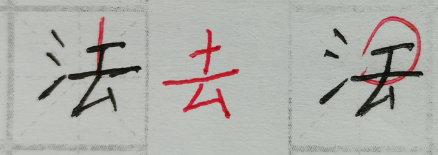 法 去 法